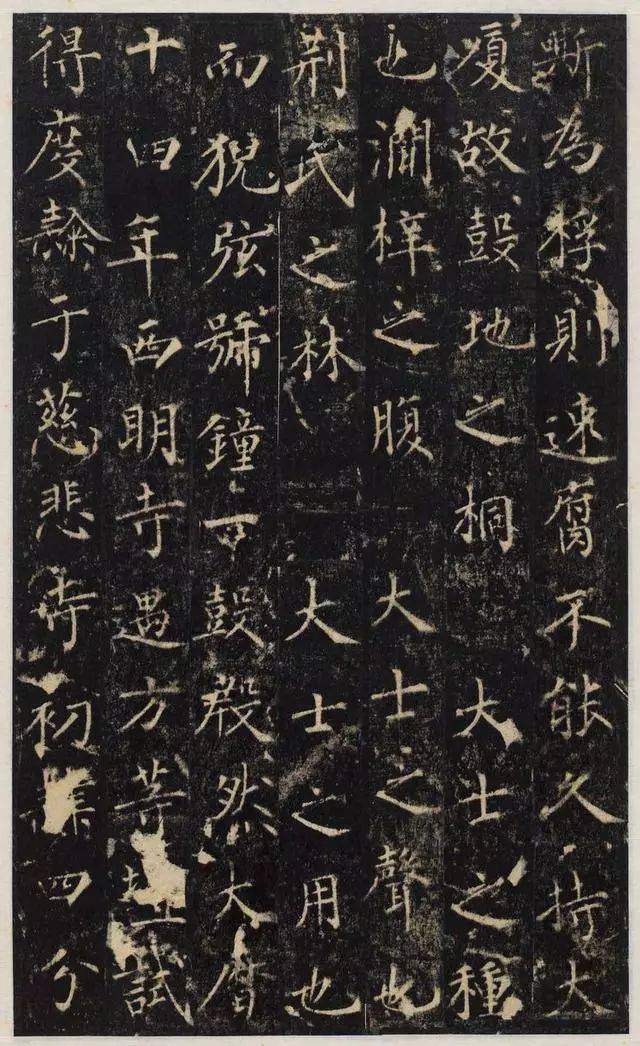 為桴則速腐不能久持大
厦故鼓地之桐大士之種
也澗梓之腹大士之聲也
荆氏之林大士之用也
而猊弦號鐘鼓殷然大曆
十四年西明寺遇方等壇試
得度隸于慈悲寺初四分